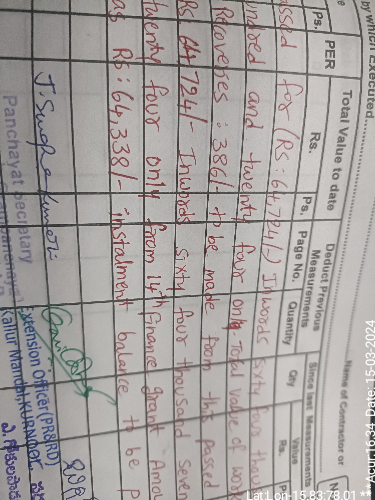 by which Executed...
Name of Contractor or
PER
Total Value to date
Deduct Previous Measurements
Since last Measurements
Ps.
Rs.
Ps.
Page No.
Quantity
Qty
Value
Rs.
ssed for (Rs: 64,724/-) Inwords sixty four thou
undred and twenty four only. Total value of wor
Recoveries : 386/- to be made from this passed
Rs 64,724/- Inwords sixty four thousand seven
twenty four only from 14th Finance grant Amou
as Rs: 64,338/- instalment balance to be P
Panchayat Secretary
Extension Officer (PR&RD)
Kallur Mandal, KURNOOL
Lat Lon-15.83,78.01 ** Acur 16:34 Date, 15-03-2024